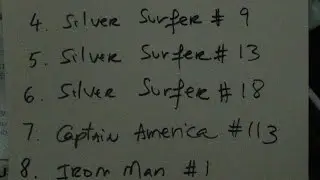 4. Silver Surfer # 9
5. Silver Surfer # 13
6. Silver Surfer # 18
7. Captain America #113
8. Iron Man #1